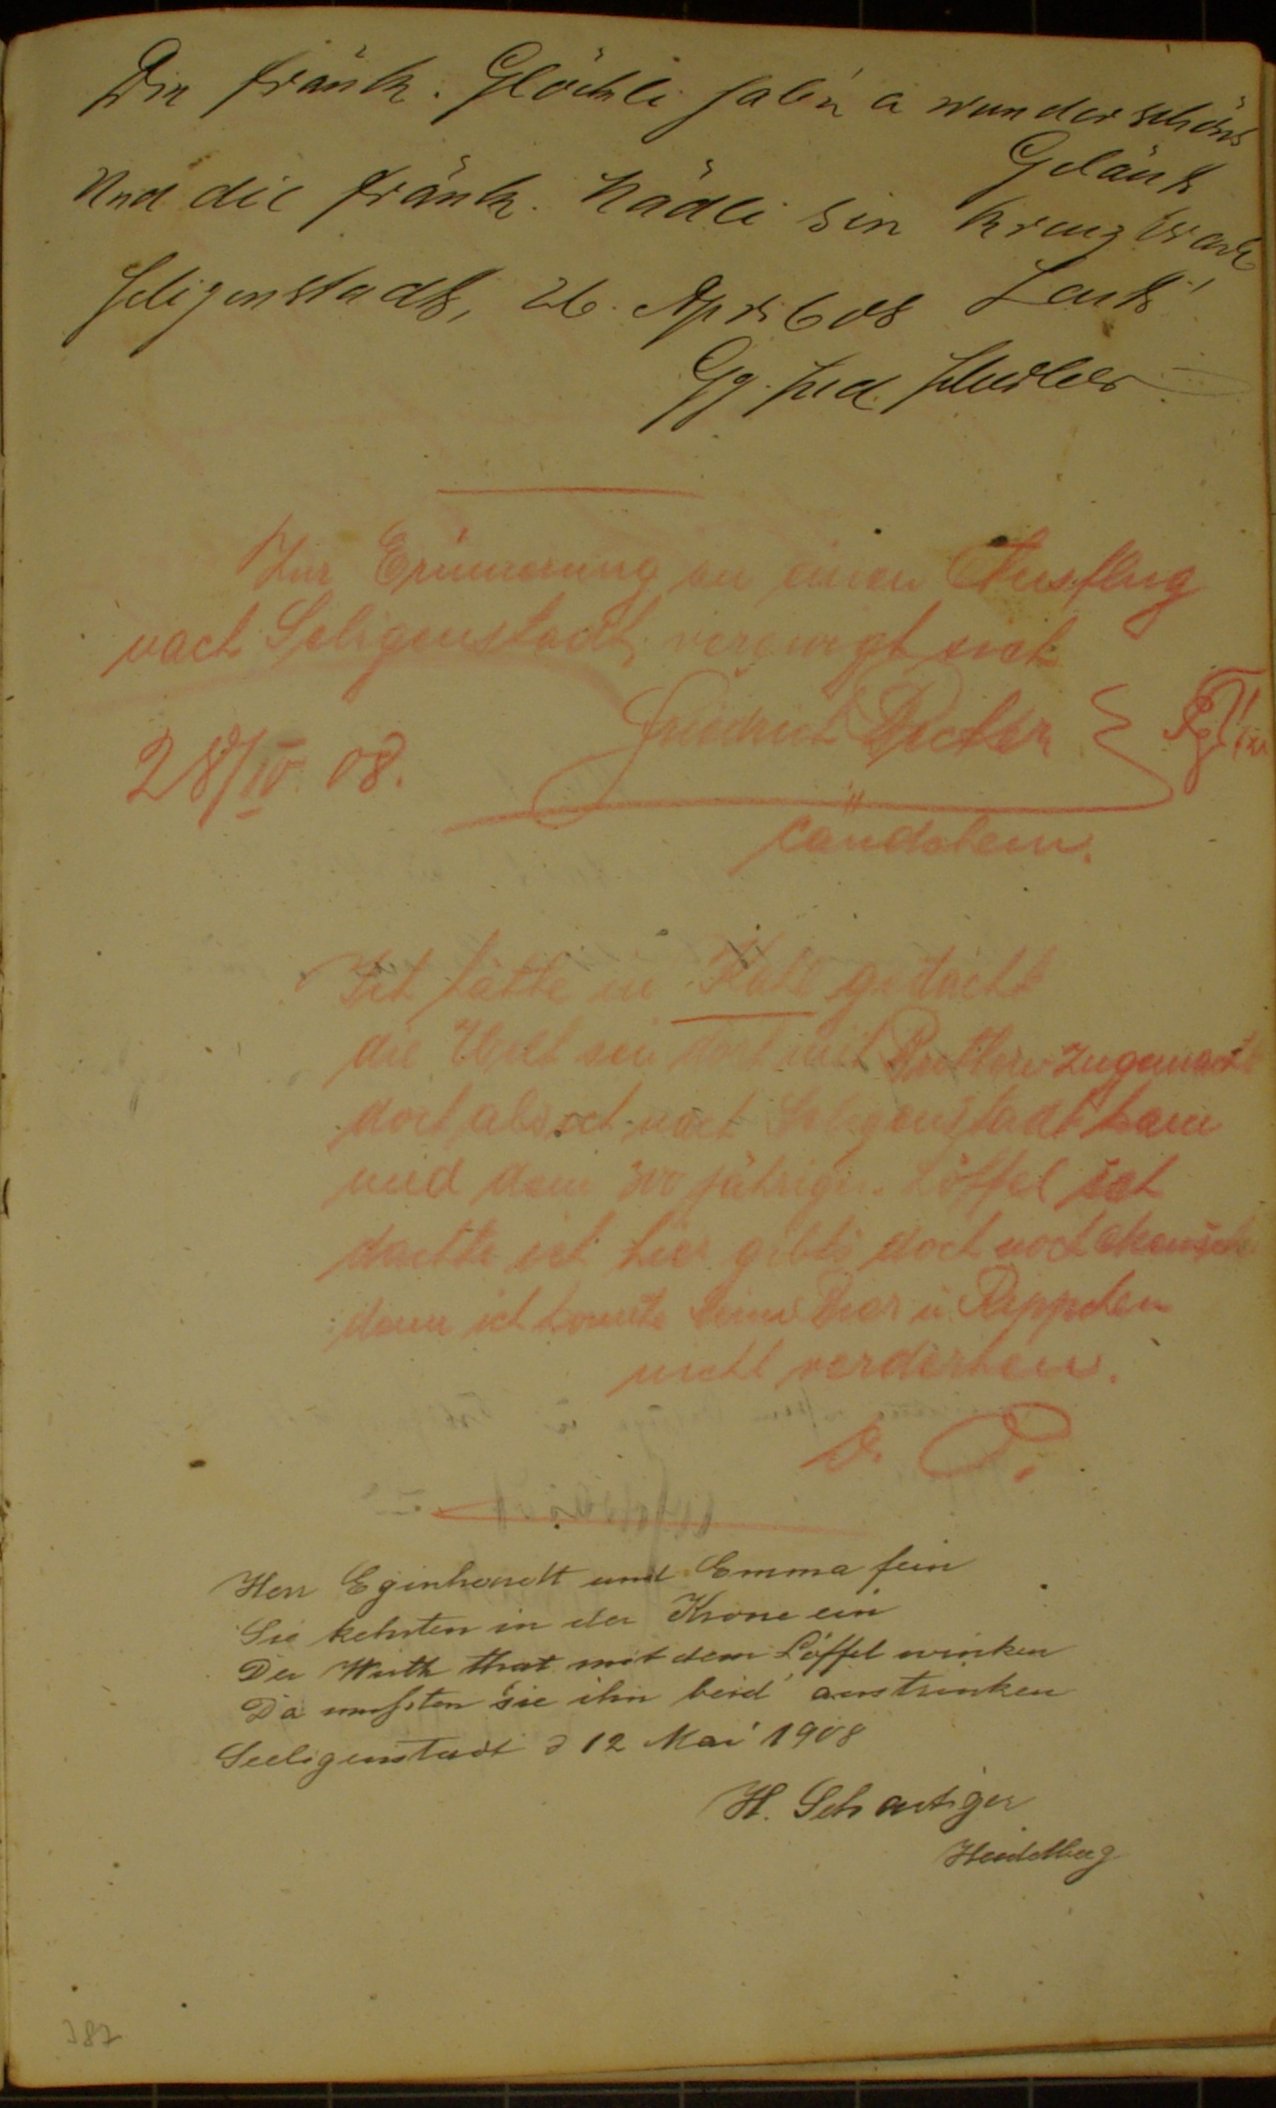 Die fränk. Glöckli habe'n a wunderschöns
Geläut
Und die fränk. Mädli sin kreuzbrave
Leut'
Seligenstadt, 26. April 08
Gg.
Zur Erinnerung an einen Ausflug
nach Seligenstadt, verewigt sich
Friedrich
28/IV. 08.
cand. chem.
Ich hätte in Kahl gedacht
die Welt sei dort mit Brettern zugemacht
doch als ich nach Seligenstadt kam
und dem 300 jährigen Löffel
dachte ich hier gibts doch noch Mensch
denn ich konnte Bier u. Rippchen
nicht verderben.
D. O.
Herr Eginhardt und Emma fein
Sie kehrten in der Krone ein
Der Wirth that mit dem Löffel winken
Da mußten sie ihn beid' austrinken
Seeligenstadt d 12 Mai 1908
H.
Heidelberg
387